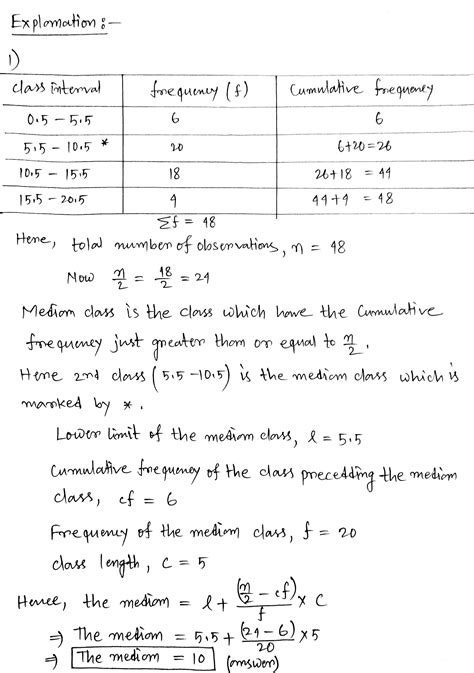 Explanation :-
1)
class interval frequency (f) Cumulative frequency
0.5 - 5.5 6 6
5.5 - 10.5 * 20 6+20=26
10.5 - 15.5 18 26+18 = 44
15.5 - 20.5 4 44+4 = 48
Σf = 48
Here, total number of observations, n = 48
Now n/2 = 48/2 = 24
Median class is the class which have the cumulative
frequency just greater than or equal to n/2.
Here 2nd class (5.5-10.5) is the median class which is
marked by *.
Lower limit of the median class, l = 5.5
Cumulative frequency of the class precedding the median
class, cf = 6
Frequency of the median class, f = 20
class length, c = 5
Hence, the median = l + (n/2 - cf)/f × c
⇒ The median = 5.5 + (24-6)/20 × 5
⇒ The median = 10 (answer)